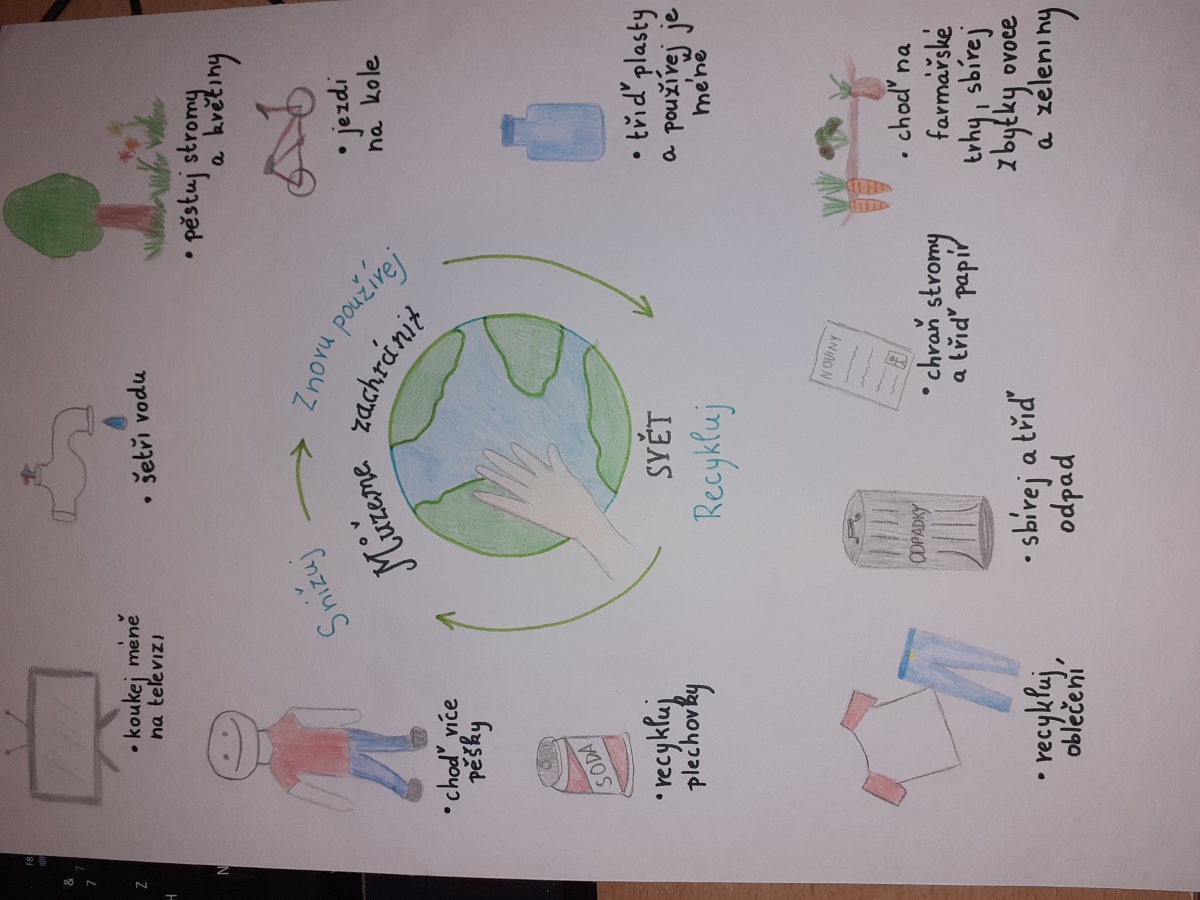 • koukej méně
na televizi
• šetři vodu
• pěstuj stromy
a květiny
• choď více
pěšky
Snižuj
Znovu používej
Recykluj
Můzeme zachránit
SVĚT
• jezdi
na kole
SODA
• recykluj
plechovky
• třiď plasty
a používej je
méně
• recykluj
oblečení
ODPADKY
• sbírej a třiď
odpad
NOVINY
• chraň stromy
a třiď papír
• choď na
farmářské
trhy, sbírej
zbytky ovoce
a zeleniny
F8
&
7
7
Z
N